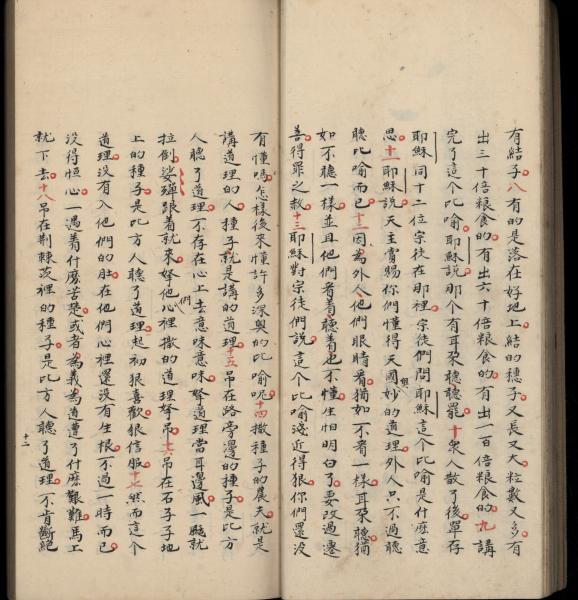 有結子八有的是落在好地上結的穗子又長又大粒數又多有
出三十倍粮食的有出六十倍粮食的有出一百倍粮食的九講
完了這个比喻耶穌說那个有耳朶聽聽罷十衆人散了後單存
耶穌同十二位宗徒在那裡宗徒們問耶穌這个比喻是什麽意
思十一耶穌說天主賞賜你們懂得天國妙的道理外人只不過聽
聽比喻而已十二因為外人他們眼時看猶如不看一樣耳朶聽猶
如不聽一樣並且他們看着聽着也不懂生怕明白了要改過遷
善得罪之赦十三耶穌對宗徒們說這个比喻淺近得狠你們還没
有懂嗎怎樣後來懂許多深奥的比喻呢十四撒種子的農夫就是
講道理的人種子就是講的道理十五吊在路旁邊的種子是比方
人聽了道理不存在心上去意味意味拏道理當耳邊風一颳就
拉倒娑殫跟着就來拏他們心裡撒的道理拏吊十六吊在石子子地
上的種子是比方人聽了道理起初狠喜歡狠信服十七然而這个
道理没有入他們的肚在他們心裡還没有生根不過一時而已
没得恒心一遇着什麽苦楚或者為義為道遭了什麽艱難馬上
就下去十八吊在荆棘茨裡的種子是比方人聽了道理不肯斷絶
十二